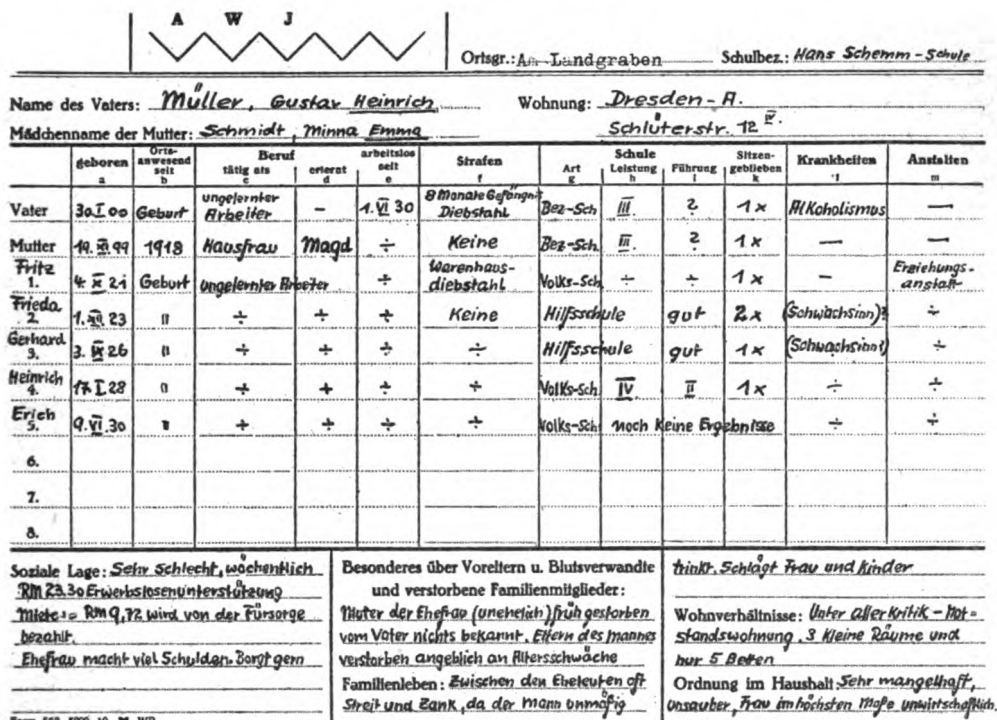 A W J
Ortsgr.: Am Landgraben Schulbez.: Hans Schemm-Schule
Name des Vaters: Müller, Gustav Heinrich Wohnung: Dresden-A.
Mädchenname der Mutter: Schmidt, Minna Emma Schlüterstr. 12 IV.
geboren Orts-anwesend seit Beruf arbeitslos seit Strafen Schule Sitzen-geblieben Krankheiten Anstalten
tätig als erlernt Art Leistung Führung
a b c d e f g h i k l m
Vater 30.I.00 Geburt ungelernter Arbeiter – 1.VI 30 8 Monate Gefängnis Diebstahl Bez-Sch III. ? 1x Alkoholismus —
Mutter 19.XI.99 1918 Hausfrau Magd ÷ Keine Bez-Sch. III. ? 1x — —
Fritz 1. 4. X 21 Geburt ungelernter Arbeiter ÷ Warenhaus-diebstahl Volks-Sch ÷ ÷ 1x – Erziehungs-anstalt
Frieda 2. 1.XII.23 " ÷ ÷ ÷ Keine Hilfsschule gut 2x (Schwachsinn)? ÷
Gerhard 3. 3. IX 26 " ÷ ÷ ÷ ÷ Hilfsschule gut 1x (Schwachsinn?) ÷
Heinrich 4. 17.I.28 " ÷ ÷ ÷ ÷ Volks-Sch. IV II 1x ÷ ÷
Erich 5. 9.VI.30 " ÷ ÷ ÷ ÷ Volks-Sch noch keine Ergebnisse ÷ ÷
6.
7.
8.
Soziale Lage: Sehr schlecht, wöchentlich
RM 23.30 Erwerbslosenunterstützung
Miete := RM 9,72 wird von der Fürsorge
bezahlt.
Ehefrau macht viel Schulden. Borgt gern
Besonderes über Voreltern u. Blutsverwandte
und verstorbene Familienmitglieder:
Muter der Ehefrau (unehelich) früh gestorben
vom Vater nichts bekannt. Eltern des Mannes
verstorben angeblich an Altersschwäche
Familienleben: Zwischen den Eheleuten oft
Streit und Zank, da der Mann unmäßig
trinkt. Schlägt Frau und Kinder
Wohnverhältnisse: Unter aller Kritik – Not=
standswohnung. 3 kleine Räume und
nur 5 Betten
Ordnung im Haushalt: Sehr mangelhaft,
unsauber, Frau im höchsten Maße unwirtschaftlich.